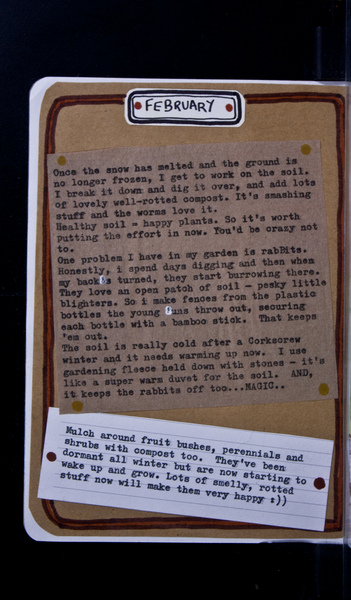 FEBRUARY
Once the snow has melted and the ground is
no longer frozen, I get to work on the soil.
I break it down and dig it over, and add lots
of lovely well-rotted compost. It's smashing
stuff and the worms love it.
Healthy soil = happy plants. So it's worth
putting the effort in now. You'd be crazy not
to.
One problem I have in my garden is rabBits.
Honestly, i spend days digging and then when
my back's turned, they start burrowing there.
They love an open patch of soil - pesky little
blighters. So i make fences from the plastic
bottles the young 'uns throw out, securing
each bottle with a bamboo stick. That keeps
'em out.
The soil is really cold after a Corkscrew
winter and it needs warming up now. I use
gardening fleece held down with stones - it's
like a super warm duvet for the soil. AND,
it keeps the rabbits off too...MAGIC..
Mulch around fruit bushes, perennials and
shrubs with compost too. They've been
dormant all winter but are now starting to
wake up and grow. Lots of smelly, rotted
stuff now will make them very happy :))